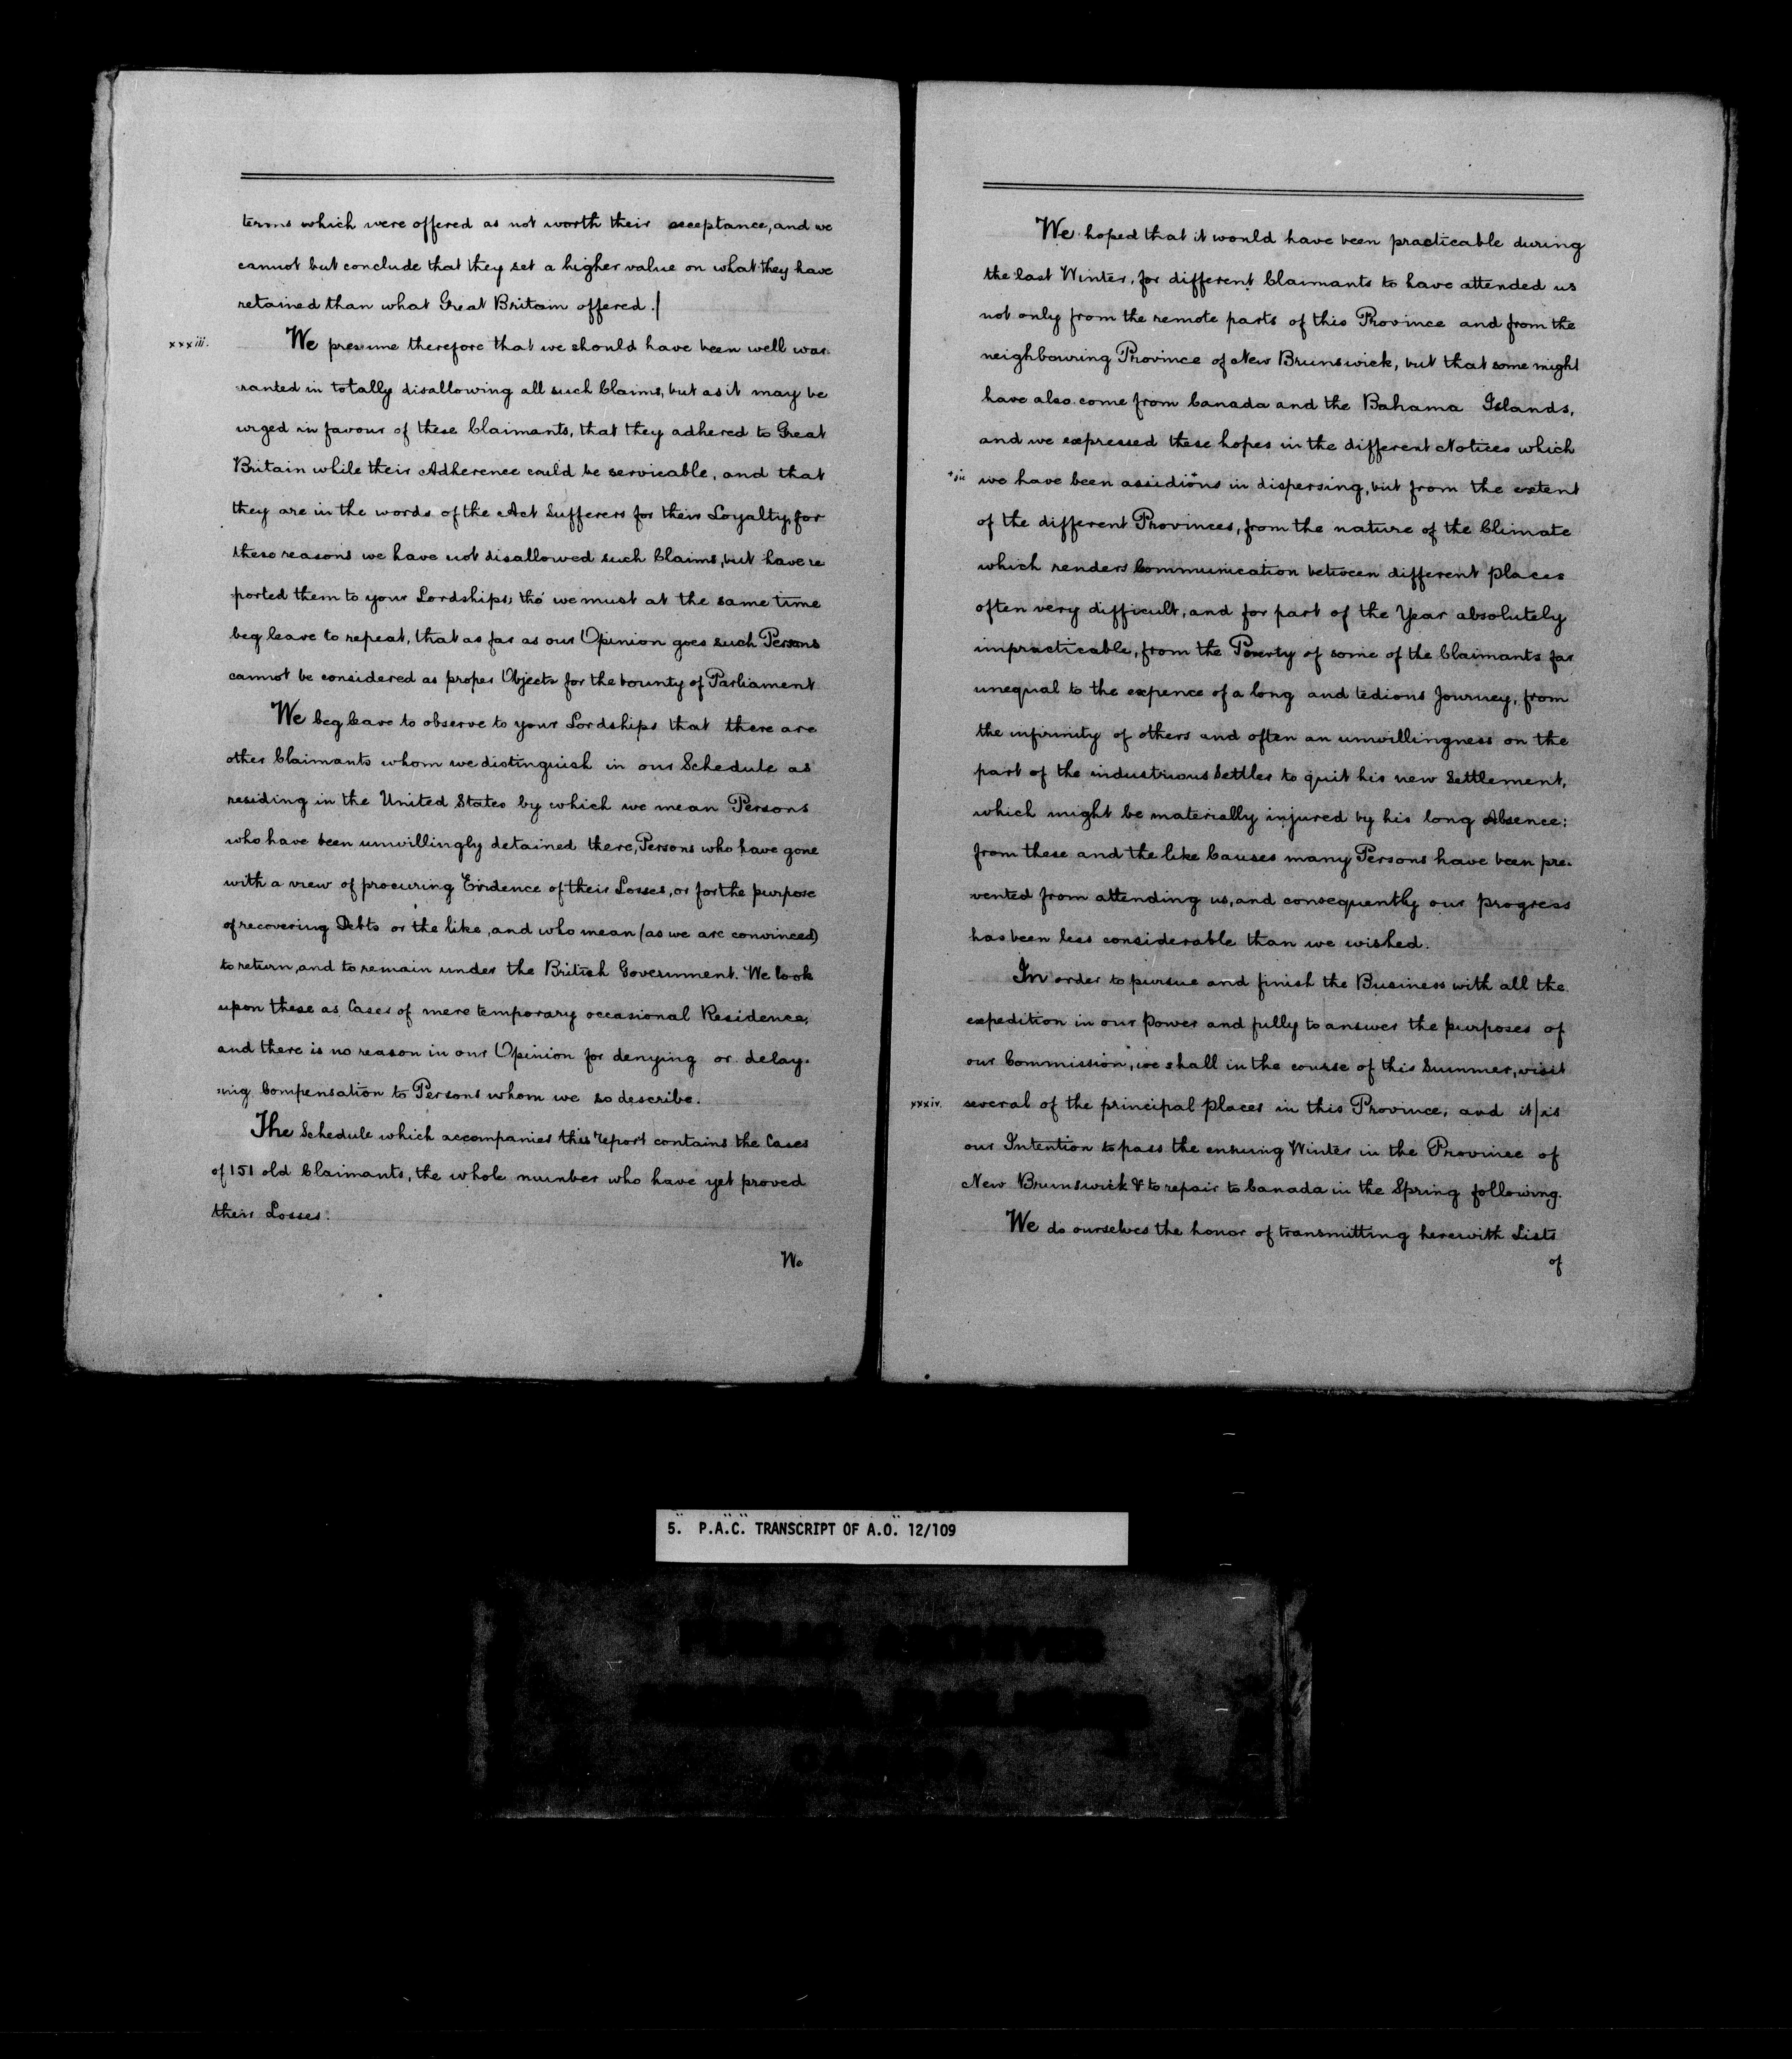 terms which were offered as not worth their acceptance, and we
cannot but conclude that they set a higher value on what they have
retained than what Great Britain offered.|
xxxiii.
We presume therefore that we should have been well war-
ranted in totally disallowing all such Claims, but as it may be
urged in favour of these Claimants, that they adhered to Great
Britain while their Adherence could be servicable, and that
they are in the words of the Act Sufferers for their Loyalty, for
these reasons we have not disallowed such Claims, but have re
ported them to your Lordships; tho' we must at the same time
beg leave to repeat, that as far as our Opinion goes such Persons
cannot be considered as proper Objects for the bounty of Parliament
We beg leave to observe to your Lordships that there are
other Claimants whom we distinguish in our Schedule as
residing in the United States by which we mean Persons
who have been unwillingly detained there, Persons who have gone
with a view of procuring Evidence of their Losses, or for the purpose
of recovering Debts or the like, and who mean (as we are convinced)
to return, and to remain under the British Government. We look
upon these as Cases of mere temporary occasional Residence,
and there is no reason in our Opinion for denying or delay-
ing Compensation to Persons whom we so describe.
The Schedule which accompanies this report contains the Cases
of 151 old Claimants, the whole number who have yet proved
their Losses.
We
We hoped that it would have been practicable during
the last Winter, for different Claimants to have attended us
not only from the remote parts of this Province and from the
neighbouring Province of New Brunswick, but that some might
have also come from Canada and the Bahama Islands,
and we expressed these hopes in the different Notices which
we have been assidious in dispersing, but from the extent
of the different Provinces, from the nature of the Climate
which renders Communication between different places
often very difficult, and for part of the Year absolutely
impracticable, from the Poverty of some of the Claimants far
unequal to the expence of a long and tedious Journey, from
the infirmity of others and often an unwillingness on the
part of the industrious Settler to quit his new Settlement,
which might be materially injured by his long Absence:
from these and the like Causes many Persons have been pre-
vented from attending us, and consequently our progress
has been less considerable than we wished.
In order to pursue and finish the Business with all the
expedition in our Power and fully to answer the purposes of
our Commission, we shall in the course of this Summer, visit
xxxiv. several of the principal places in this Province, and it|is
our Intention to pass the ensuing Winter in the Province of
New Brunswick & to repair to Canada in the Spring following.
We do ourselves the honor of transmitting herewith Lists
of
5. P.A.C. TRANSCRIPT OF A.O. 12/109